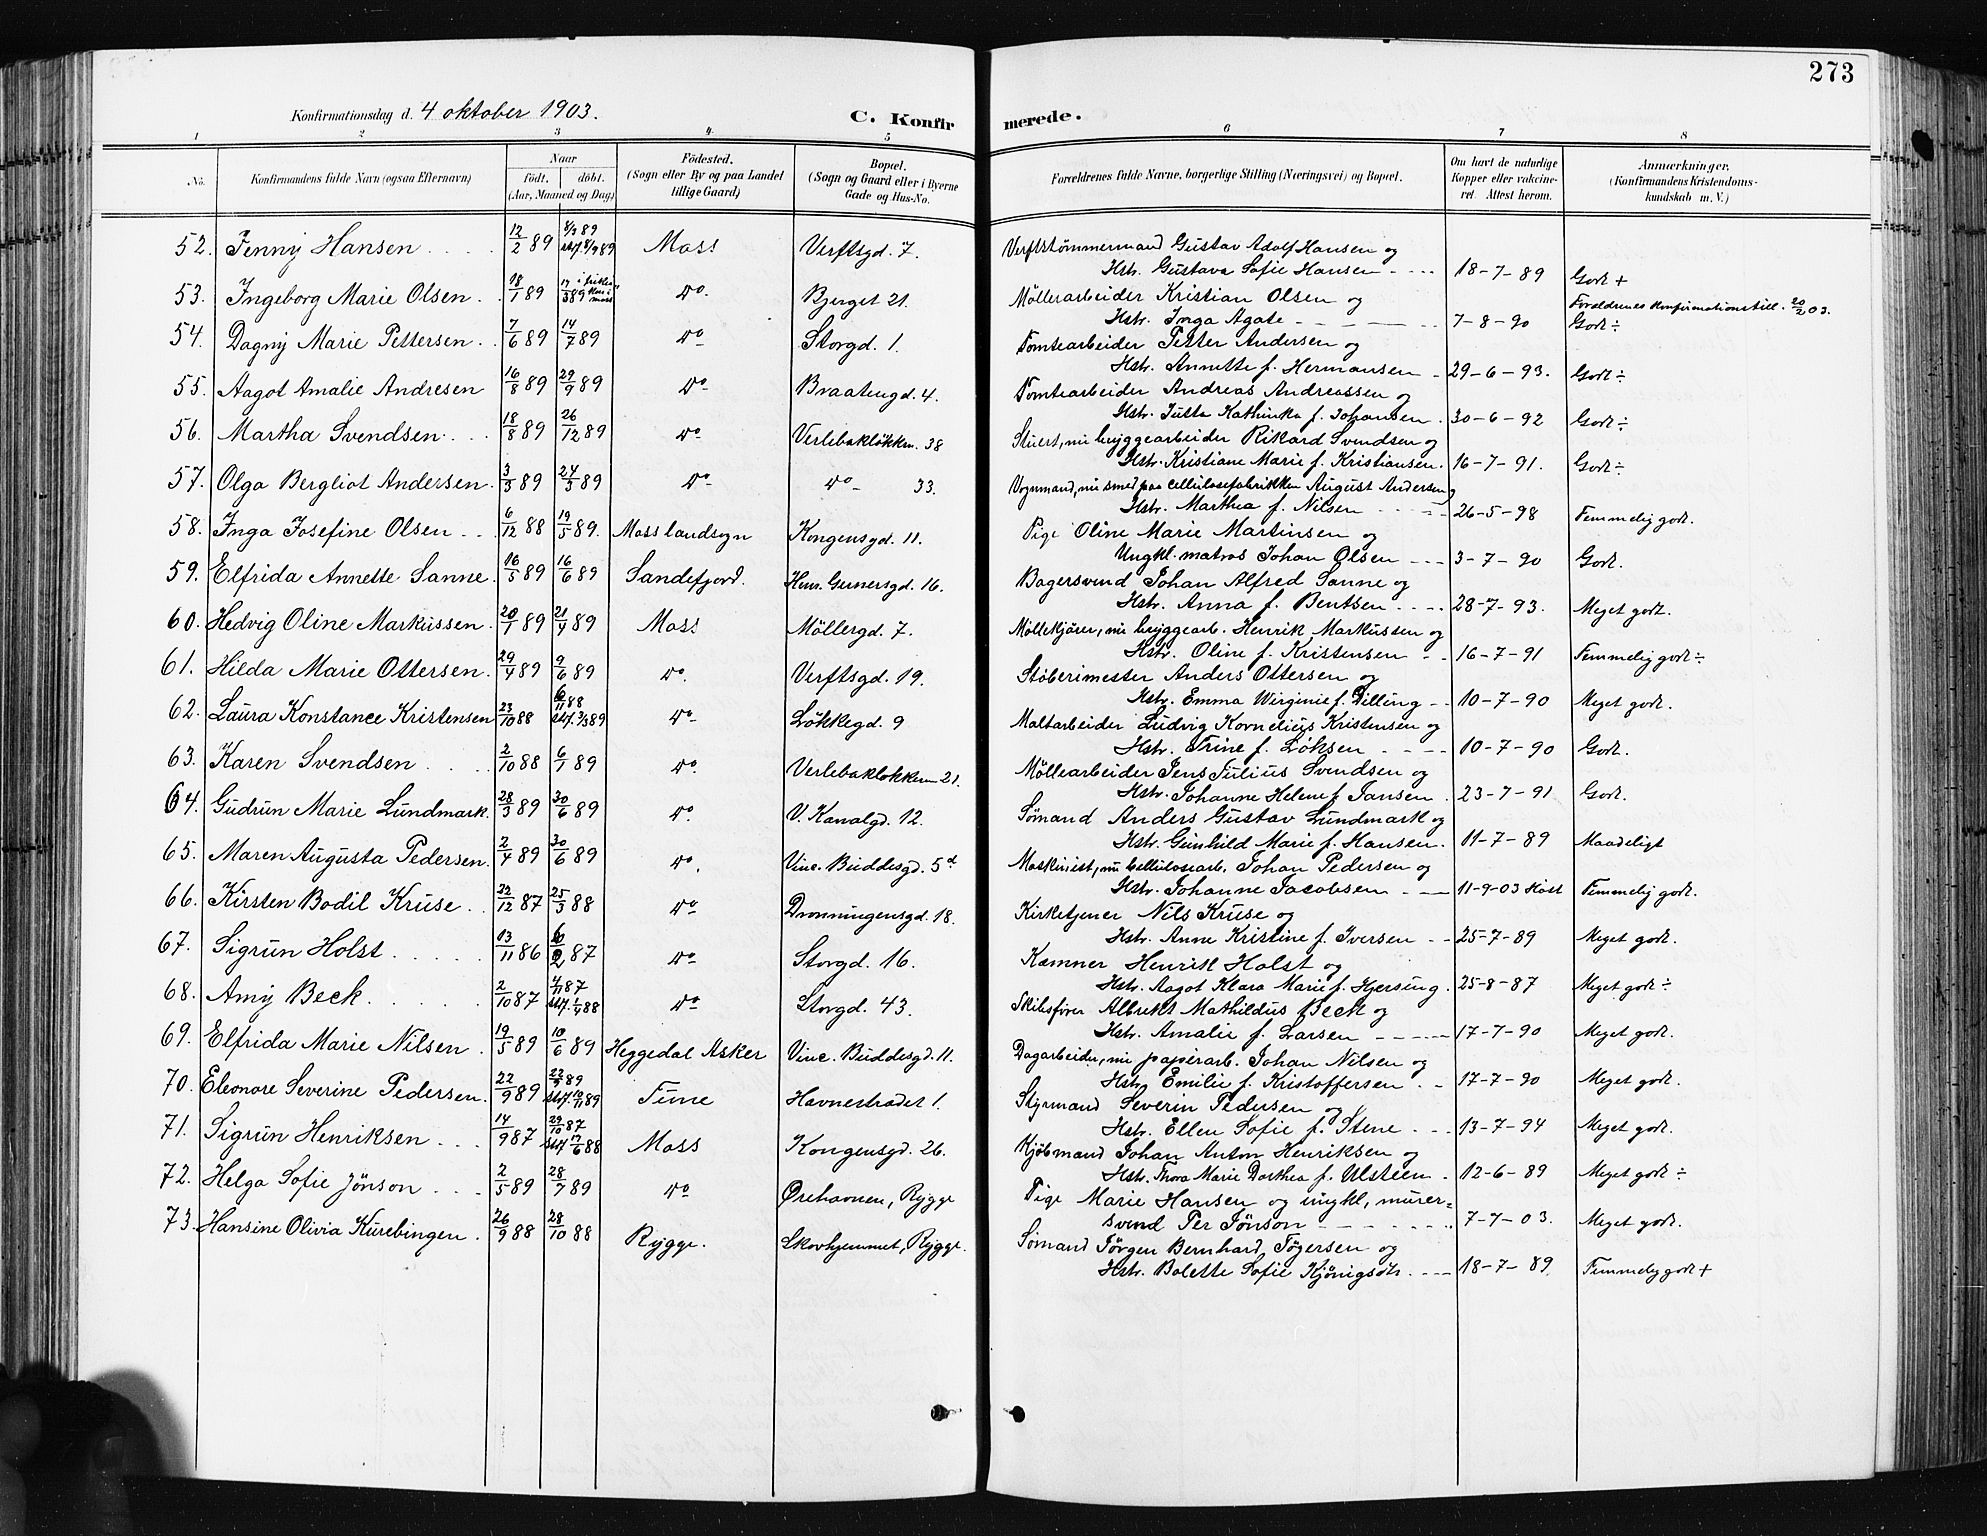 273
Konfirmationsdag d. 4 oktober 1903.
C. Konfirmerede.
1 2 3 4. 5 6 7 8
No. Konfirmandens fulde Navn (ogsaa Efternavn) Naar födt. döbt. (Aar, Maaned og Dag) Födested. (Sogn eller By og paa Landet tillige Gaard) Bopæl. (Sogn og Gaard eller i Byerne Gade og Hus-No. Forældrenes fulde Navne, borgerlige Stilling (Næringsvei) og Bopæl. Om havt de naturlige Kopper eller vakcineret. Attest herom. Anmærkninger, (Konfirmandens Kristendomskundskab m. V.)
52. Jenny Hansen 12/2 89 Moss Verftsgd. 7. Verftstömmermand Gustav Adolf Hansen og
Hstr. Gustava Sofie Hansen 18-7-89 Godt +
53. Ingeborg Marie Olsen 18/1 89 17/3 89 do. Bjerget 21. Möllerarbeider Kristian Olsen og Forældrenes konfirmationstill. 20/2 03.
Hstr. Inga Agate 7-8-90 Godt ÷
54. Dagny Marie Pettersen 7/6 89 14/7 89 do Storgd. 1. Tomtearbeider Petter Andersen og
Hstr. Annette f. Hermansen 29-6-93. Godt ÷
55. Aagot Amalie Andresen 16/8 89 29/9 89 do Braatengd. 4. Tomtearbeider Andreas Andreassen og
Hstr. Jutta Kathinka f. Johansen 30-6-92 Godt ÷
56. Martha Svendsen 18/8 89 26/12 89 do Verlebaklökken 38 Stuert, nu bryggearbeider Rikard Svendsen og
Hstr. Kristiane Marie f. Kristiansen. 16-7-91. Godt ÷
57. Olga Bergliot Andersen 3/3 89 24/3 89 do do 33. Vognmand, nu smed paa cellulosefabrikken August Andersen og
Hstr. Marthea f. Nilsen 26-5-98 Temmelig godt.
58. Inga Josefine Olsen 6/12 88 19/5 89. Moss landsogn Kongensgd. 11. Pige Oline Marie Martinsen og
Ungkl. matros Johan Olsen 3-7-90 Godt.
59. Elfrida Annette Sanne 16/5 89 16/6 89 Sandefjord. Henr. Gernersgd. 16. Bagersvend Johan Alfred Sanne og
Hstr. Anna f. Bentsen 28-7-93. Meget godt.
60. Hedvig Oline Markussen 20/1 89 21/4 89 Moss Möllergd. 7. Möllekjörer, nu bryggearb. Henrik Markussen og
Hstr. Oline f. Kristensen 16-7-91 Temmelig godt ÷
61. Hilda Marie Ottersen 29/4 89 9/6 89 do. Verftsgd. 19. Støberimester Anders Ottersen og
Hstr. Emma Wirginie f. Dilling 10-7-90 Meget godt.
62. Laura Konstance Kristensen 23/10 88 do Lökkegd. 9 Maltarbeider Ludvig Kornelius Kristensen og
Hstr. Trine f. Löksen 10-7-90 Godt.
63. Karen Svendsen 2/10 88 6/1 89 do. Verlebaklökken 21. Möllearbeider Jens Julius Svendsen og
Hstr. Johanne Helene f. Jansen 23-7-91 Godt.
64. Gudrun Marie Lundmark. 28/3 89 30/6 89 do. V. Kanalgd. 12. Sömand Anders Gustav Lundmark og
Hstr. Gunhild Marie f. Hansen. 11-7-89 Maadeligt
65. Maren Augusta Pedersen. 2/4 89 30/6 89 do. Vinc. Buddesgd. 5d Maskinist, nu cellulosearb. Johan Pedersen og
Hstr. Johanne Jacobsen 11-9-03 Höst Temmelig godt.
66. Kirsten Bodil Kruse 22/12 87 25/3 88 do Dronningensgd. 18. Kirketjener Nils Kruse og
Hstr. Anne Kristine f. Iversen 25-7-89 Meget godt.
67. Sigrun Holst 13/11 86 do Storgd. 16. Kæmner Henrik Holst og
Hstr. Aagot Klara Marie f. Hjersing. 25-8-87 Meget godt ÷
68. Amy Beck 2/10 87 4/11 87 stf. 1/4 88 do Storgd. 43. Skibsfører Albrekt Mathildus Beck og
Hstr. Amalie f. Larsen 17-7-90 Meget godt.
69. Elfrida Marie Nilsen 19/5 89 10/6 89 Heggedal Asker Vinc. Buddesgd. 11. Dagarbeider, nu papirarb. Johan Nilsen og
Hstr. Emilie f. Kristoffersen 17-7-90 Meget godt.
70. Eleonore Severine Pedersen. 22/9 89 Tune Havnestradet 1. Styrmand Severin Pedersen og
Hstr. Ellen Sofie f. Stene 13-7-94 Meget godt.
71. Sigrun Henriksen 14/9 87 29/10 87 stf. 17/6 88 Moss Kongensgd. 26. Kjöbmand Johan Anton Henriksen og
Hstr. Thora Marie Dorthea f. Ulsteen 12-6-89 Meget godt ÷
72. Helga Sofie Jönson 2/5 89 28/7 89 do Ørehavnen, Rygge Pige Marie Hansen og ungkl, murer=
svend Per Jönson 7-7-03. Meget godt.
73. Hansine Olivia Kurebingen 26/9 88 28/10 88 Rygge. Skovhjemmet, Rygge. Sömand Jörgen Bernhard Tögersen og
Hstr. Bolette Sofie 18-7-89. Temmelig godt +